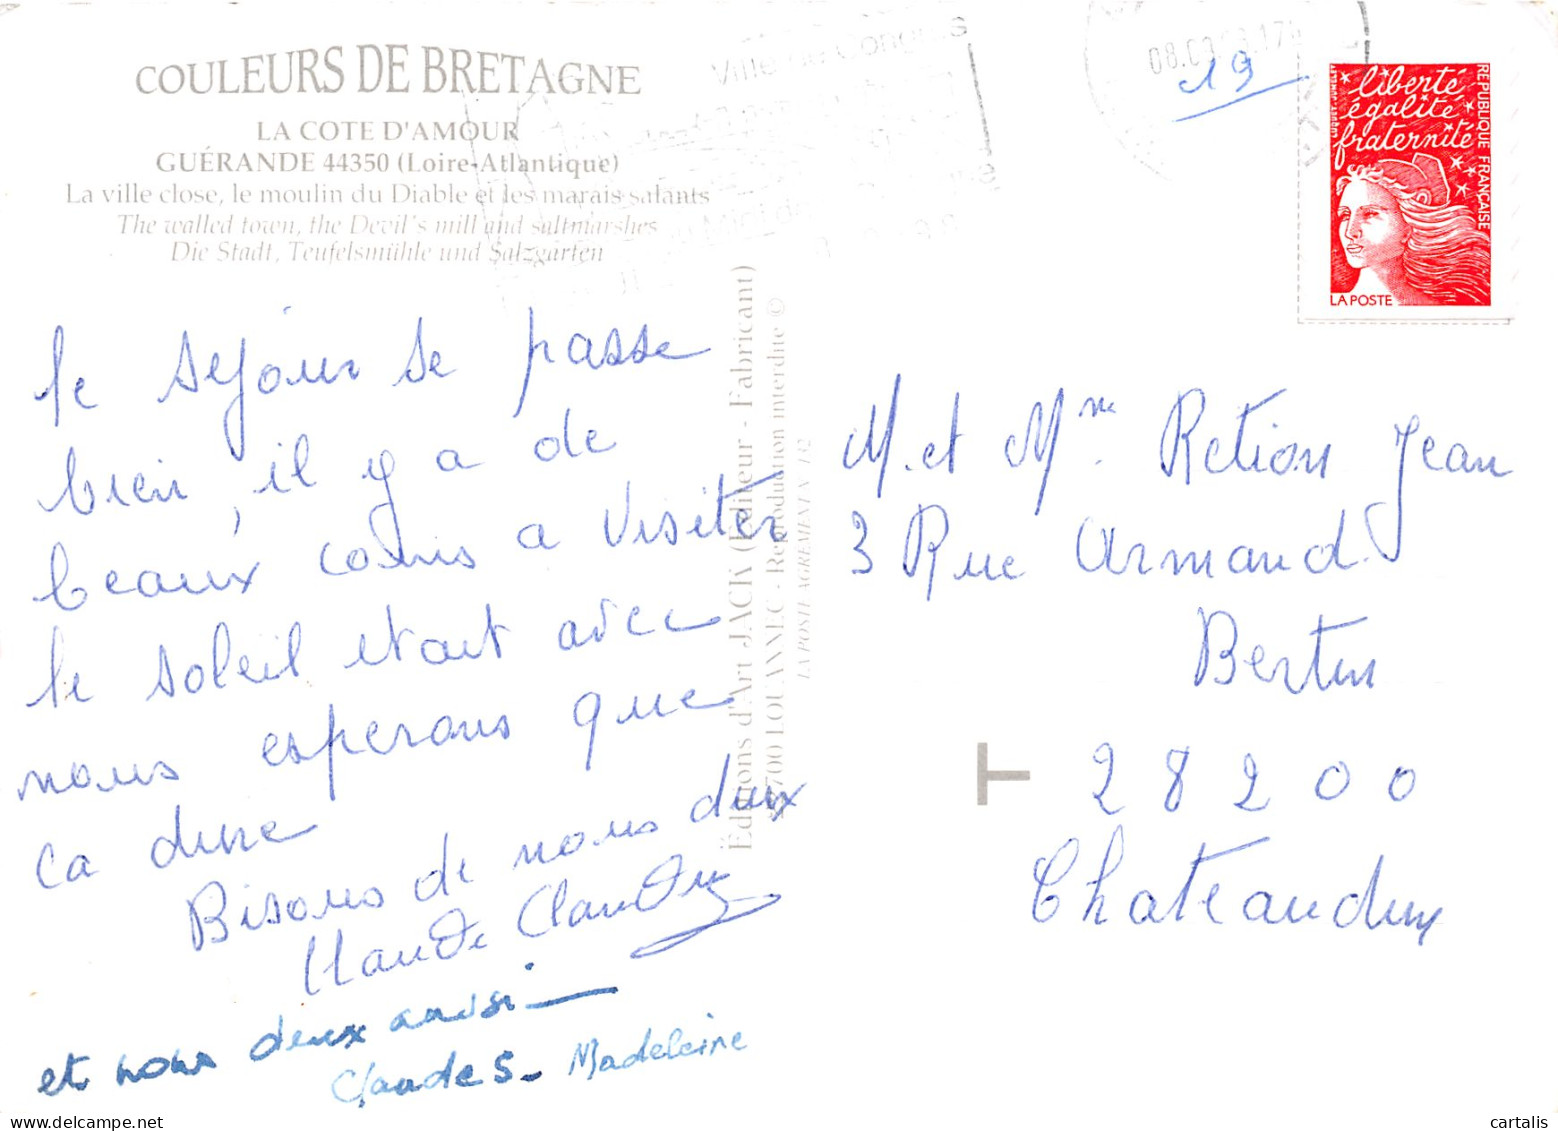 COULEURS DE BRETAGNE
LA COTE D'AMOUR
GUÉRANDE 44350 (Loire-Atlantique)
La ville close, le moulin du Diable et les marais salants
The walled town, the Devil's mill and saltmarshes
Die Stadt, Teufelsmühle und Salzgärten
le sejour se passe
bien, il y a de
beaux coins a visiter
le soleil etait avec
nous esperons que
ca dure
Bisous de nous deux
Claude Claudine
et nous deux aussi
Claude S. Madeleine
Éditions d'Art JACK (Éditeur - Fabricant)
LOUANNEC - Reproduction interdite ©
LA POSTE AGREMENT N°
Ville de Congrès
19
liberté
égalité
fraternité
REPUBLIQUE FRANÇAISE
LA POSTE
M. et Mme Retion Jean
3 Rue Armand
Bertin
28200
Chateaudun
cartalis